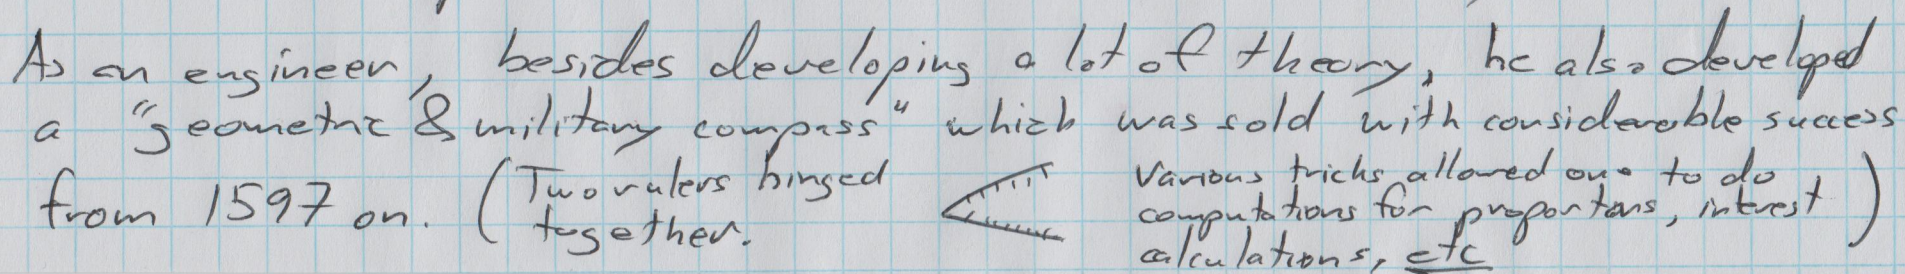 As an engineer, besides developing a lot of theory, he also developed
a "geometric & military compass" which was sold with considerable success
from 1597 on. (Two rulers hinged
together.
Various tricks allowed one to do
computations for proportons, interest
calculations, etc)